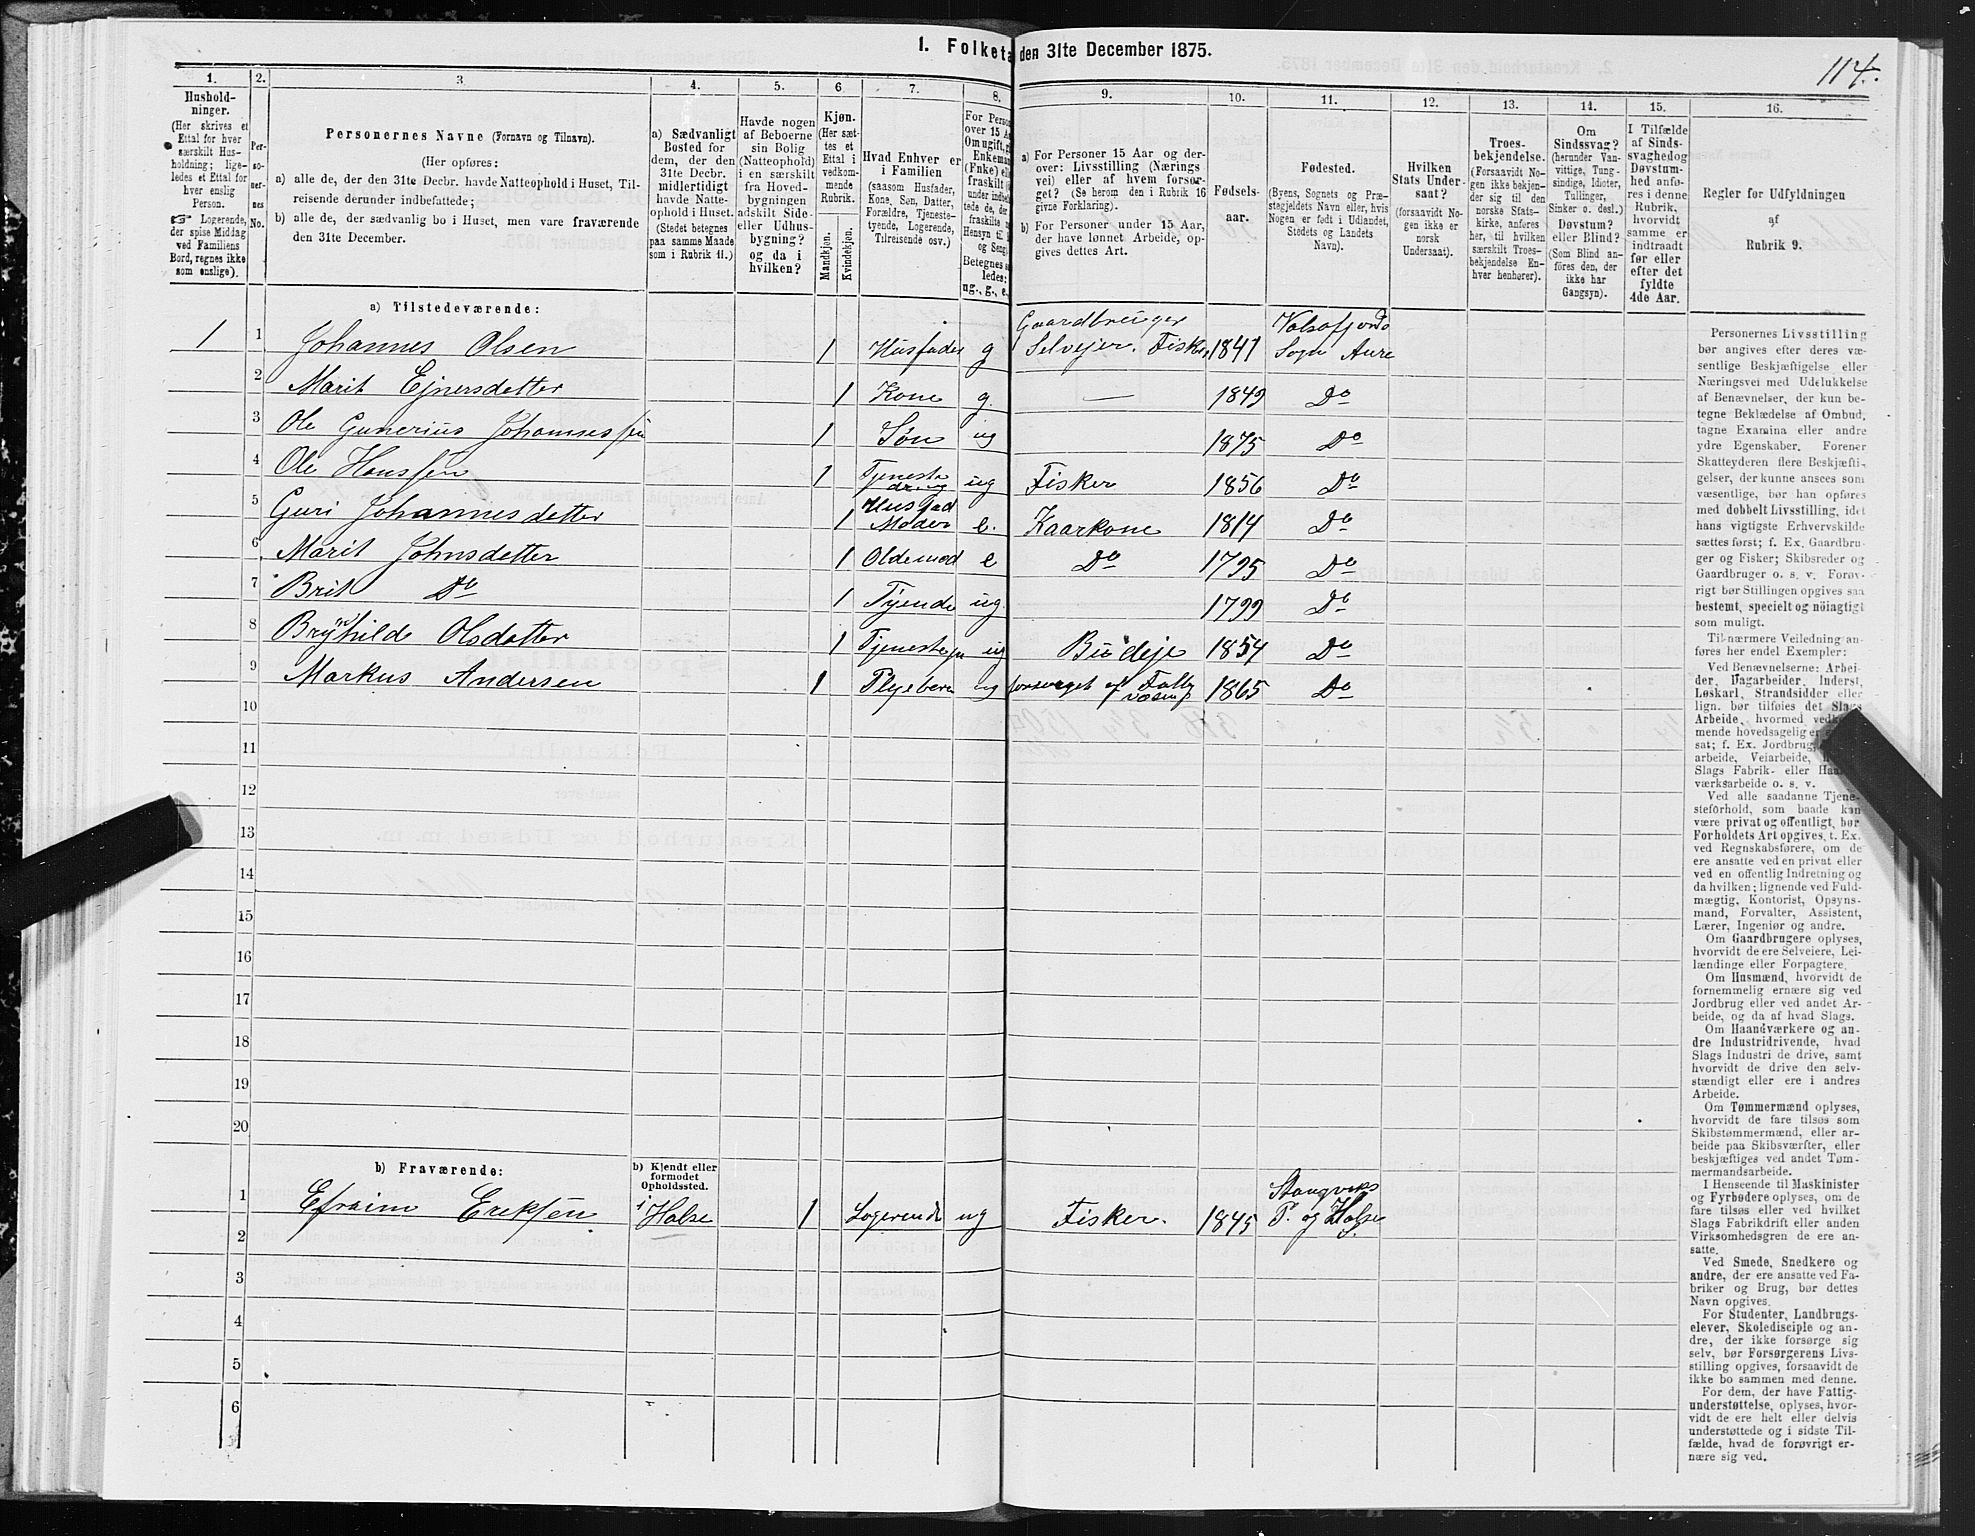 1. Folketa den 31te December 1875.
114.
1. 2. 3. 4. 5. 6 7. 8. 9. 10. 11. 12. 13. 14. 15. 16.
Hushold-
ninger.
(Her skrives et
Ettal for hver
særskilt Hus-
holdning; lige-
ledes et Ettal for
hver enslig
Person.
☞ Logerende,
der spise Middag
ved Familiens
Bord, regnes ikke
som enslige).
Per-
so-
ner-
nes
No.
Personernes Navne (Fornavn og Tilnavn).
(Her opføres:
a) alle de, der den 31te Decbr. havde Natteophold i Huset, Til-
reisende derunder indbefattede;
b) alle de, der sædvanlig bo i Huset, men vare fraværende
den 31te December.
a) Sædvanligt
Bosted for
dem, der den
31te Decbr.
midlertidigt
havde Natte-
ophold i Huset.
(Stedet betegnes
paa samme Maade
som i Rubrik 11.)
Havde nogen
af Beboerne
sin Bolig
(Natteophold)
i en særskilt
fra Hoved-
bygningen
adskilt Side-
eller Udhus-
bygning?
og da i
hvilken?
Kjøn.
(Her sæt-
tes et
Ettal i
vedkom-
mende
Rubrik.
Mandkjøn.
Kvindekjøn.
Hvad Enhver er
i Familien
(saasom Husfader,
Kone, Søn, Datter,
Forældre, Tjeneste-
tyende, Logerende,
Tilreisende osv.)
For Person
over 15 Aa
Om ugift, g
Enkeman
(Enke) elle
fraskilt
under indbe
tede de, der
fraskilte
Hensyn til
og Seng
Betegnes s
ledes:
ug., g., e.,
a) For Personer 15 Aar og der-
over: Livsstilling (Nærings
vei) eller af hvem forsør-
get? (Se herom den i Rubrik 16
givne Forklaring).
b) For Personer under 15 Aar,
der have lønnet Arbeide, op-
gives dettes Art.
Fødsels-
aar.
Fødested.
(Byens, Sognets og Præ-
stegjeldets Navn eller, hvis
Nogen er født i Udlandet,
Stedets og Landets
Navn).
Hvilken
Stats Under-
saat?
(forsaavidt No-
gen ikke er
norsk
Undersaat).
Troes-
bekjendelse.
(Forsaavidt No-
gen ikke bekjen-
der sig til den
norske Stats-
kirke, anføres
her, til hvilken
særskilt Troes-
bekjendelse En-
hver henhører).
Om
Sindssvag?
(herunder Van-
vittige, Tung-
sindige, Idioter,
Tullinger,
Sinker o. desl.)
Døvstum?
eller Blind?
(Som Blind an-
føres den, der
ikke har
Gangsyn).
I Tilfælde
af Sinds-
svaghed og
Døvstum-
hed anfø-
res i denne
Rubrik,
hvorvidt
samme er
indtraadt
før eller
efter det
fyldte
4de Aar.
Regler før Udfyldningen
af
Rubrik 9.
a) Tilstedeværende:
1 1 Johannes Olsen 1 Husfader g Gaardbruger Selveier. Fisker 1847 Valsøfjords Sogn Aure
2 Marit Ejnersdatter 1 Kone g. — 1849 Do
3 Ole Gunerius Johannessen 1 Søn ug 1875 Do
4 Ole Hanssen 1 Tjeneste dreng ug Fisker 1856 Do
5 Guri Johannesdatter 1 Husfad Moder e. Kaarkone 1814 Do
6 Marit Johnsdatter 1 Oldemod e Do 1795 Do
7 Brit Do 1 Tyende ug. 1799 Do
8 Brynhilde Olsdatter 1 Tjenestepi ug Budeje 1854 Do
9 Markus Andersen 1 Plejebarn ug forsørget af Fattigvæsen 1865 Do
10
11
12
13
14
15
16
17
18
19
20
b) Fraværende:
b) Kjendt eller
formodet
Opholdssted.
1 Efraim Eriksen. i Halse 1 Logerende ug Fisker. 1845 Stangviks P. og Halse
2
3
4
5
6
Personernes Livsstilling
bør angives efter deres væ-
sentlige Beskjæftigelse eller
Næringsvei med Udelukkelse
af Benævnelser, der kun be-
tegne Beklædelse af Ombud,
tagne Examina eller andre
ydre Egenskaber. Forener
Skatteyderen flere Beskjæfti-
gelser, der kunne ansees som
væsentlige, bør han opføres
med dobbelt Livsstilling, idet
hans vigtigste Erhvervskilde
sættes først; f. Ex. Gaardbru-
ger og Fisker; Skibsreder og
Gaardbruger o. s. v. Forøv-
rigt bør Stillingen opgives saa
bestemt, specielt og nöiagtigt
som muligt.
Til nærmere Veiledning an-
føres her endel Exempler:
Ved Benævnelserne: Arbei-
der, Dagarbeider, Inderst,
Løskarl, Strandsidder eller
lign. bør tilføies det Slags
Arbeide, hvormed vedkom-
mende hovedsagelig er
sat; f. Ex. Jordbrug,
arbeide, Veiarbeide,
Slags Fabrik- eller Haand
værksarbeide o. s. v.
Ved alle saadanne Tjene-
steforhold, som baade kan
være privat og offentligt, bør
Forholdets Art opgives, t. Ex.
ved Regnskabsførere, om de
ere ansatte ved en privat eller
ved en offentlig Indretning og
da hvilken; lignende ved Fuld-
mægtig, Kontorist, Opsyns-
mand, Forvalter, Assistent,
Lærer, Ingeniør og andre.
Om Gaardbrugere oplyses,
hvorvidt de ere Selveiere, Lei-
lændinge eller Forpagtere.
Om Husmænd, hvorvidt de
fornemmelig ernære sig ved
Jordbrug eller ved andet Ar-
beide, og da af hvad Slags.
Om Haandværkere og an-
dre Industridrivende, hvad
Slags Industri de drive, samt
hvorvidt de drive den selv-
stændigt eller ere i andres
Arbeide.
Om Tømmermænd oplyses,
hvorvidt de fare tilsøs som
Skibstømmermænd, eller ar-
beide paa Skibsværfter, eller
beskjæftiges ved andet Tøm-
mermandsarbeide.
I Henseende til Maskinister
og Fyrbødere oplyses, om de
fare tilsøs eller ved hvilket
Slags Fabrikdrift eller anden
Virksomhedsgren de ere an-
satte.
Ved Smede, Snedkere og
andre, der ere ansatte ved Fa-
briker og Brug, bør dettes
Navn opgives.
For Studenter, Landbrugs-
elever, Skoledisciple og an-
dre, der ikke forsørge sig
selv, bør Forsørgerens Livs-
stilling opgives, forsaavidt de
ikke bo sammen med denne.
For dem, der have Fattig-
understøttelse, oplyses, hvor-
vidt de ere helt eller delvis
understøttede og i sidste Til-
fælde, hvad de forøvrigt er-
nære sig ved.